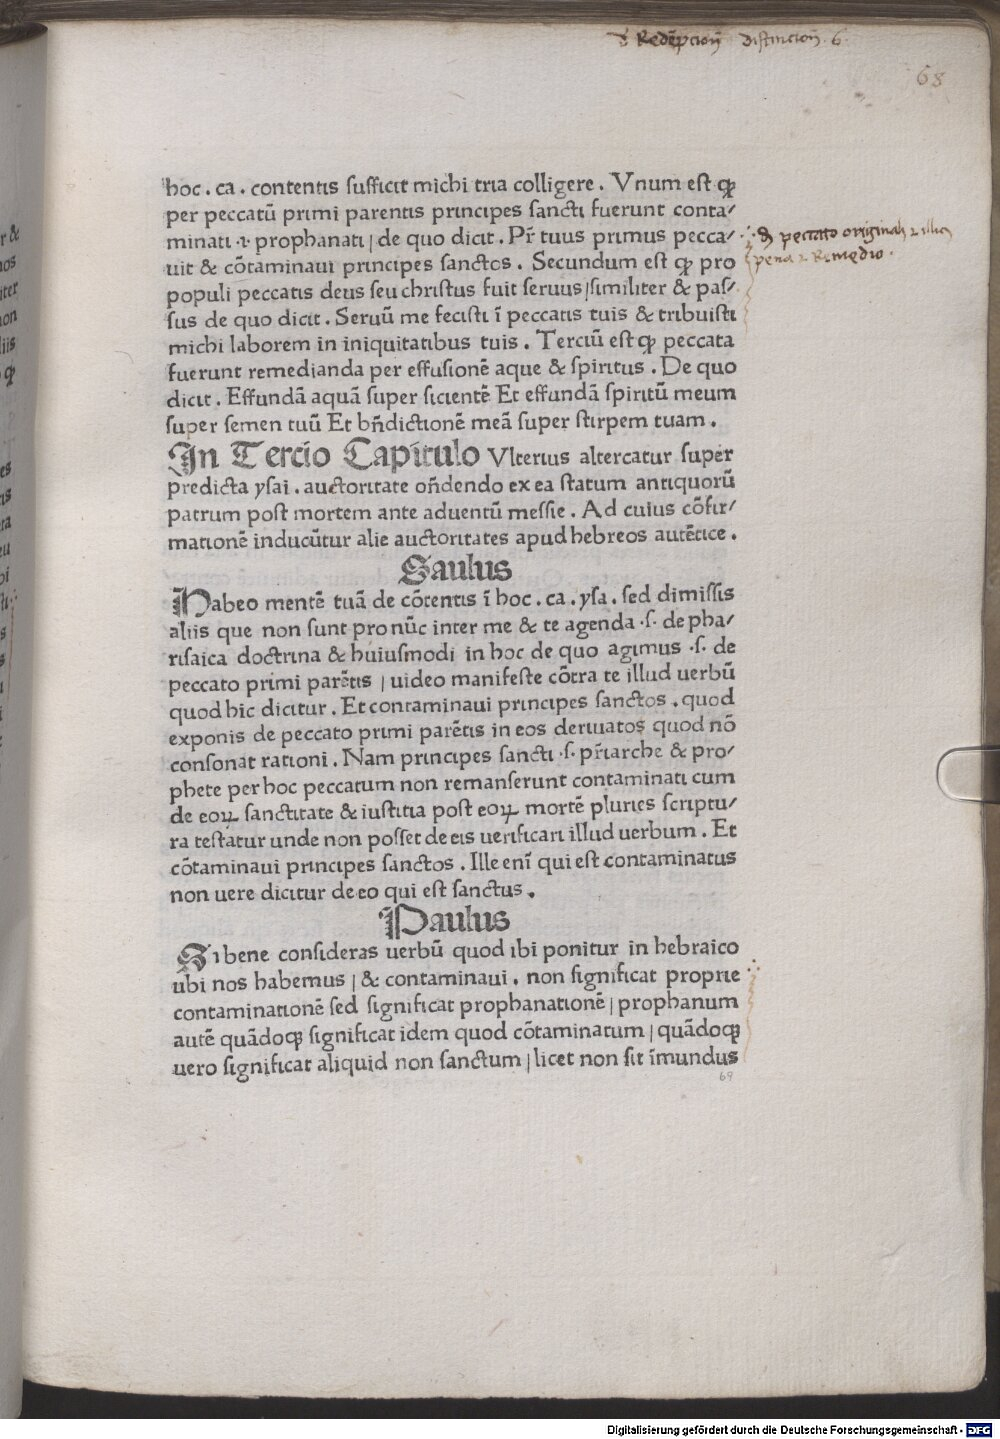 Redẽpcioñ distincioñ . 6 .
68
hoc . ca . contentis sufficit michi tria colligere . Vnum est ꝙ
per peccatũ primi parentis principes sancti fuerunt conta⸗
minati .i. prophanati | de quo dicit . Pr̃ tuus primus pecca⸗
uit & cõtaminaui principes sanctos . Secundum est ꝙ pro
populi peccatis deus seu christus fuit seruus | similiter & pas⸗
sus de quo dicit . Seruũ me fecisti ĩ peccatis tuis & tribuisti
michi laborem in iniquitatibus tuis . Terciũ est ꝙ peccata
fuerunt remedianda per effusionẽ aque & spiritus . De quo
dicit . Effundã aquã super sicientẽ Et effundã spiritũ meum
super semen tuũ Et bñdictionẽ meã super stirpem tuam .
In Tercio Capitulo Vlterius altercatur super
predicta ysai . auctoritate oñdendo ex ea statum antiquorũ
patrum post mortem ante aduentũ messie . Ad cuius cõfir⸗
mationẽ inducũtur alie auctoritates apud hebreos autẽtice .
Saulus
Habeo mentẽ tuã de cõtentis ĩ hoc . ca . ysa . sed dimissis
aliis que non sunt pro nũc inter me & te agenda .s. de pha⸗
risaica doctrina & huiusmodi in hoc de quo agimus .s. de
peccato primi parẽtis | uideo manifeste cõtra te illud uerbũ
quod hic dicitur . Et contaminaui principes sanctos . quod
exponis de peccato primi parẽtis in eos deriuatos quod nõ
consonat rationi . Nam principes sancti .s. pr̃iarche & pro⸗
phete per hoc peccatum non remanserunt contaminati cum
de eoꝝ sanctitate & iustitia post eoꝝ mortẽ pluries scriptu⸗
ra testatur unde non posset de eis uerificari illud uerbum . Et
cõtaminaui principes sanctos . Ille enĩ qui est contaminatus
non uere dicitur de eo qui est sanctus .
Paulus
Si bene consideras uerbũ quod ibi ponitur in hebraico
ubi nos habemus | & contaminaui . non significat proprie
contaminationẽ sed significat prophanationẽ | prophanum
autẽ quãdoqꝫ significat idem quod cõtaminatum | quãdoqꝫ
uero significat aliquid non sanctum | licet non sit ĩmundus
69
peccato originali
pena Remedio .
Digitalisierung gefördert durch die Deutsche Forschungsgemeinschaft - DFG